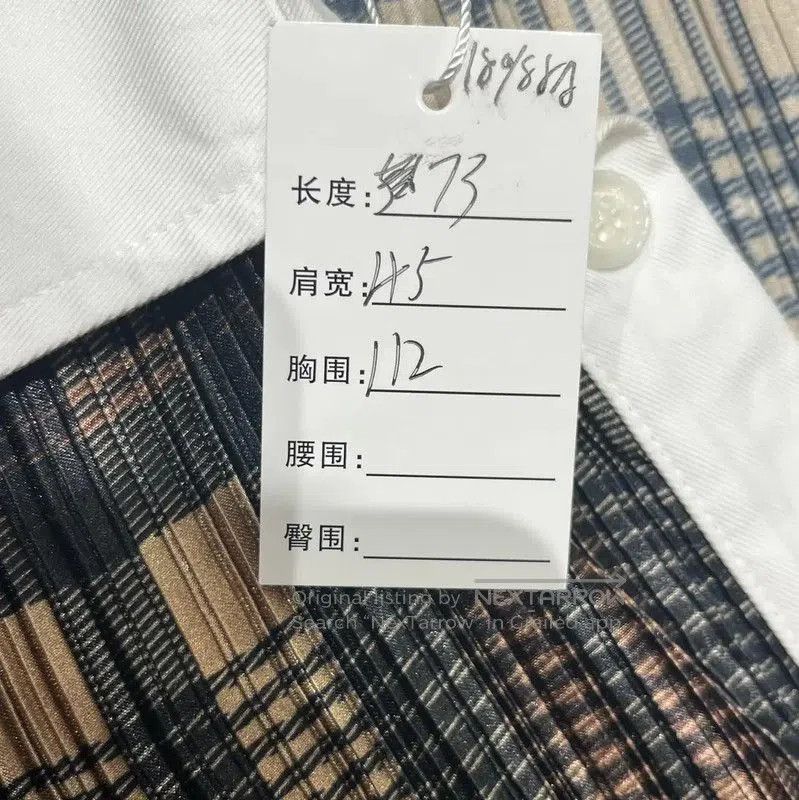 长度: 73
肩宽: 45
胸围: 112
腰围:
臀围:
Original listing by NEXTARROW
Search "NexTarrow" in C